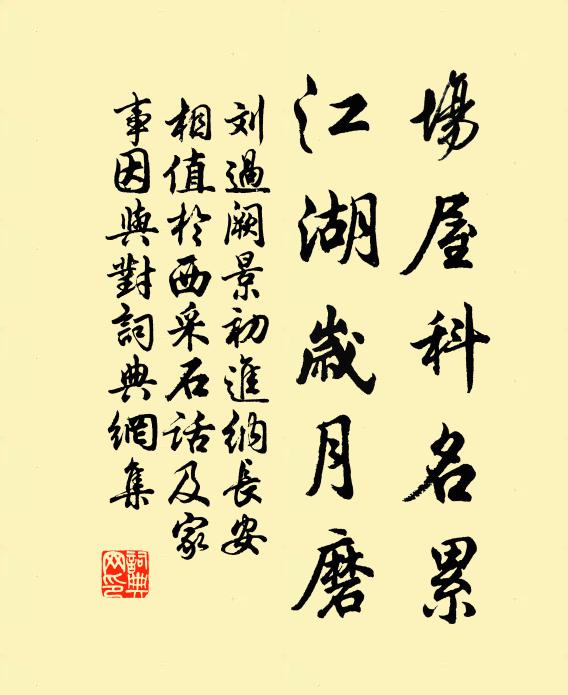 場屋科名累
江湖歲月磨
刘過闕景初進納長安
相值於西采石話及家
事因與對詞典網集
詞典
网印